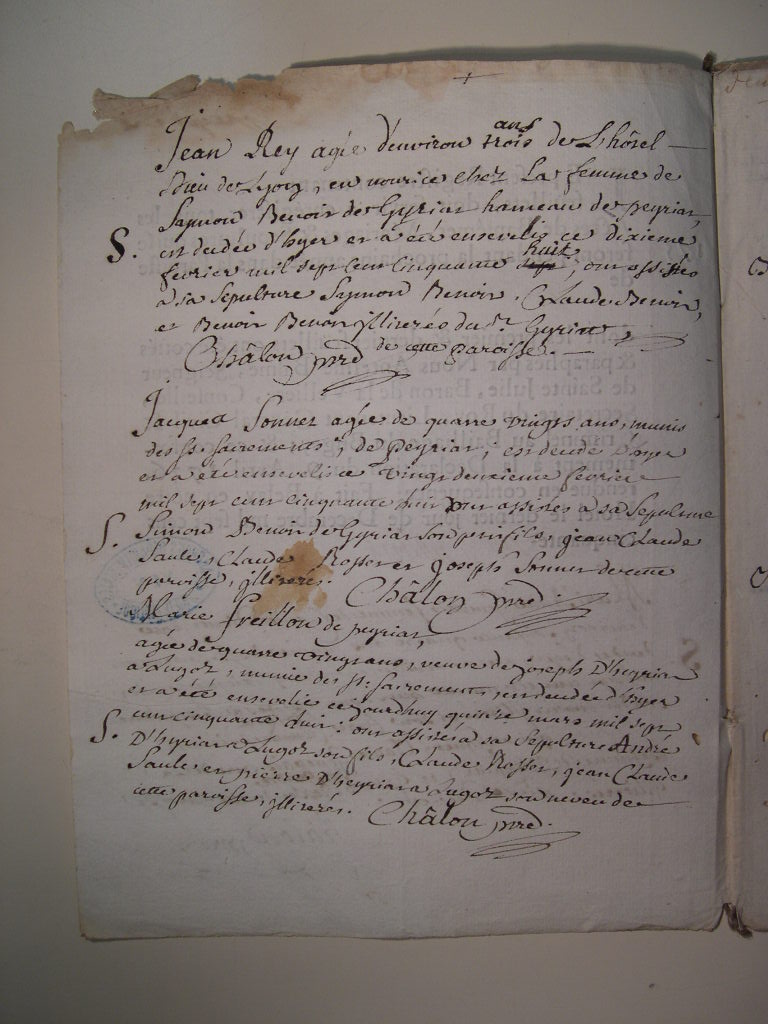 Jean Rey agée d'environ trois ans de L'hôtel
Dieu de Lyon, en nourice chez La femme de
Symon Benoit de Gyriat hameau de peyriat,
S. est decedée d'hyer et a été enseveli ce dixieme
fevrier mil sept cent cinquante huit, ont assistés
a sa sepulture Symon Benoit, Claude Benoit,
et Benoit Benoit illiterés du d.t Gyriat,
de cette paroisse.
Châlon
Jacques Sonnet agée de quatre vingts ans, munis
des Ss. sacrements, de peyriat, est decede d'hyer
et a été enseveli ce vingt deuxieme fevrier
mil sept cent cinquante huit ont assistes a sa sepulture
S. Simon Benoit de Gyriat son fils, jean Claude
Saule, Claude Rosset et joseph Sonnet de cette
paroisse, illiterés. Châlon
Marie freillon de peyriat,
agée de quatre vingt ans, veuve de joseph D'heyriat
a Lugot, munie des St. sacrements, est decedée d'hyer
et a été ensevelie ce jourdhuy quinze mars mil sept
cent cinquante huit: ont assisté a sa sepulture André
S. D'heyriat a Lugot son fils, Claude Rosset, jean Claude
Saule, et pierre D'heyriat a Lugot son neveu de
cette paroisse, illiterés. Châlon